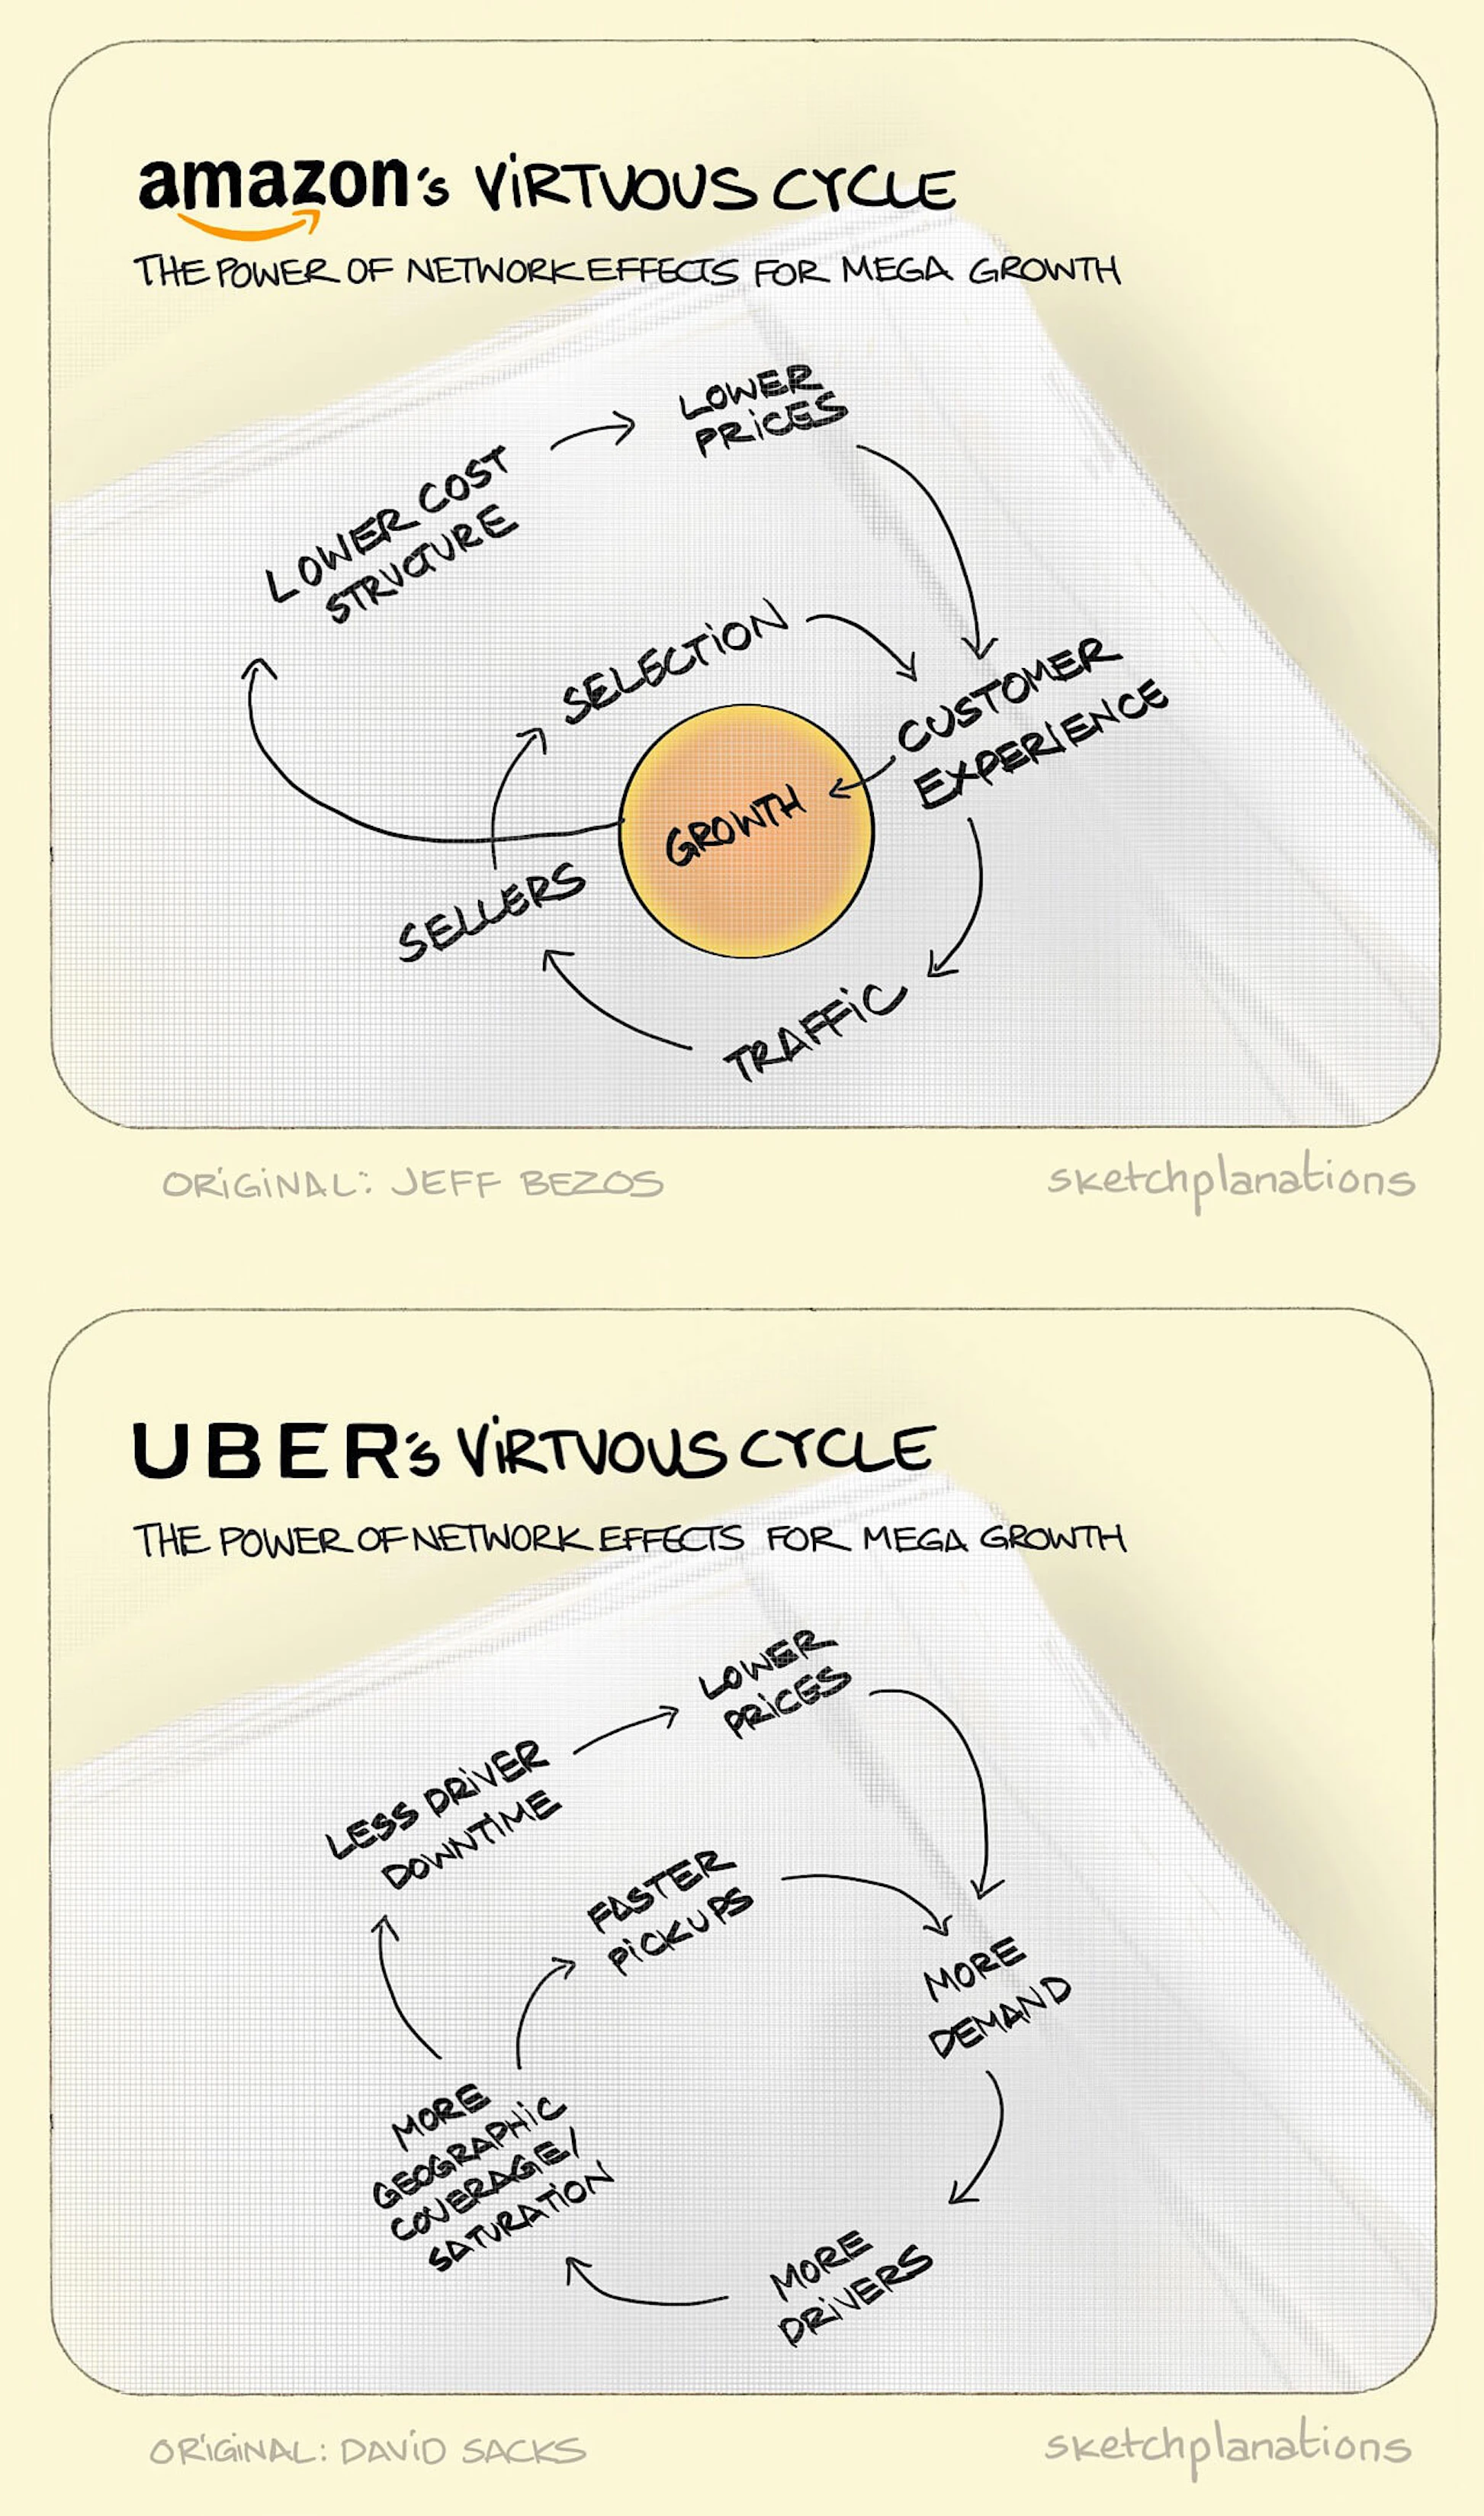 amazon's ViRTUOUS CYCLE
THE POWER OF NETWORK EFFECTS FOR MEGA GROWTH
LOWER
PRiCES
LOWER COST
STRUCTURE
SELECTiON
CUSTOMER
EXPERiENCE
GROWTH
SELLERS
TRAFFiC
ORiGiNAL: JEFF BEZOS
sketchplanations
UBER's ViRTUOUS CYCLE
THE POWER OF NETWORK EFFECTS FOR MEGA GROWTH
LOWER
PRiCES
LESS DRiVER
DOWNTiME
FASTER
PiCKUPS
MORE
DEMAND
MORE
GEOGRAPHiC
COVERAGE/
SATURATiON
MORE
DRiVERS
ORiGiNAL: DAViD SACKS
sketchplanations